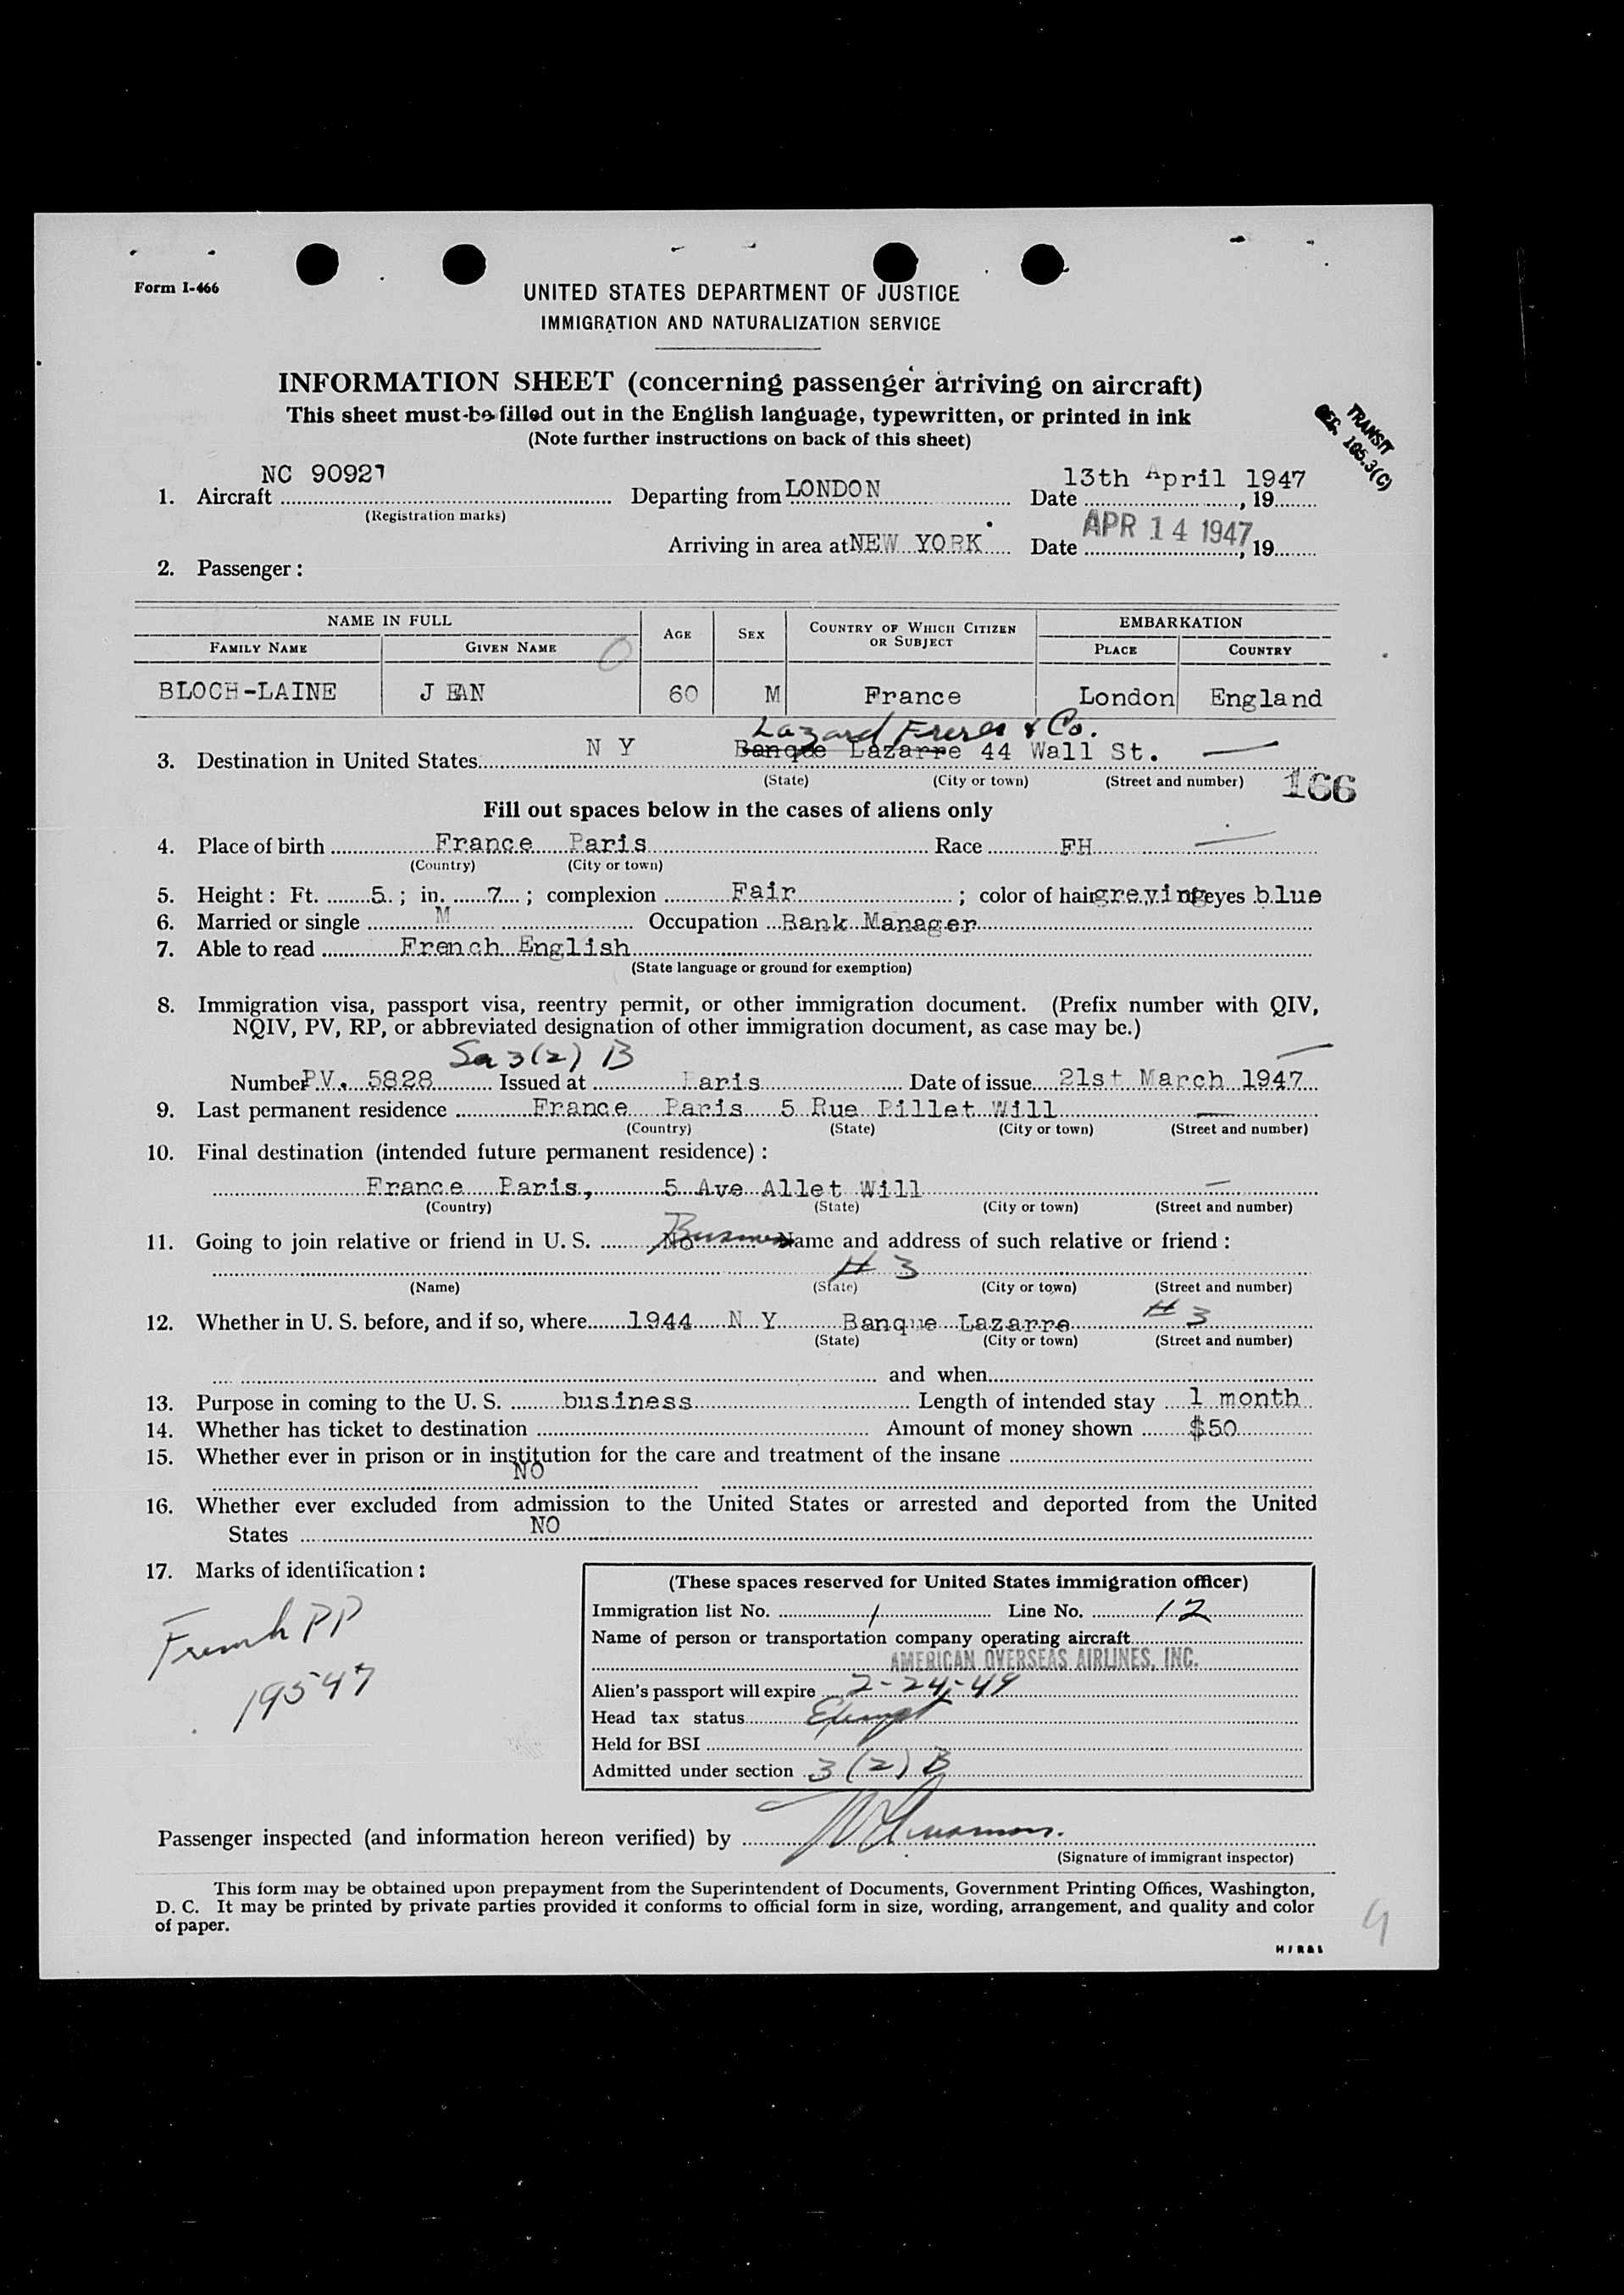 Form I-466
UNITED STATES DEPARTMENT OF JUSTICE
IMMIGRATION AND NATURALIZATION SERVICE
INFORMATION SHEET (concerning passenger arriving on aircraft)
This sheet must be filled out in the English language, typewritten, or printed in ink
(Note further instructions on back of this sheet)
TRANSIT
REG. 105.3(C)
1. Aircraft NC 90921 Departing from LONDON Date 13th April 1947, 19
(Registration marks)
Arriving in area at NEW YORK Date APR 14 1947, 19
2. Passenger:
NAME IN FULL AGE SEX COUNTRY OF WHICH CITIZEN OR SUBJECT EMBARKATION
FAMILY NAME GIVEN NAME PLACE COUNTRY
BLOCH-LAINE JEAN 60 M France London England
Lazard Freres & Co.
3. Destination in United States N Y Banque Lazarre 44 Wall St.
(State) (City or town) (Street and number)
166
Fill out spaces below in the cases of aliens only
4. Place of birth France Paris Race FH
(Country) (City or town)
5. Height: Ft. 5; in. 7; complexion Fair; color of hair greying eyes blue
6. Married or single M Occupation Bank Manager
7. Able to read French English
(State language or ground for exemption)
8. Immigration visa, passport visa, reentry permit, or other immigration document. (Prefix number with QIV,
NQIV, PV, RP, or abbreviated designation of other immigration document, as case may be.)
3(2) B
Number P.V. 5828 Issued at Paris Date of issue 21st March 1947
9. Last permanent residence France Paris 5 Rue Pillet Will
(Country) (State) (City or town) (Street and number)
10. Final destination (intended future permanent residence):
France Paris, 5 Ave Allet Will
(Country) (State) (City or town) (Street and number)
11. Going to join relative or friend in U. S. No Business Name and address of such relative or friend:
# 3
(Name) (State) (City or town) (Street and number)
12. Whether in U. S. before, and if so, where 1944 N Y Banque Lazarre # 3
(State) (City or town) (Street and number)
and when
13. Purpose in coming to the U. S. business Length of intended stay 1 month
14. Whether has ticket to destination Amount of money shown $50
15. Whether ever in prison or in institution for the care and treatment of the insane
NO
16. Whether ever excluded from admission to the United States or arrested and deported from the United
States NO
17. Marks of identification:
French PP
19547
(These spaces reserved for United States immigration officer)
Immigration list No. 1 Line No. 12
Name of person or transportation company operating aircraft
AMERICAN OVERSEAS AIRLINES, INC.
Alien's passport will expire 2-24-49
Head tax status Exempt
Held for BSI
Admitted under section 3 (2) B
Passenger inspected (and information hereon verified) by
(Signature of immigrant inspector)
This form may be obtained upon prepayment from the Superintendent of Documents, Government Printing Offices, Washington,
D. C. It may be printed by private parties provided it conforms to official form in size, wording, arrangement, and quality and color
of paper.
9